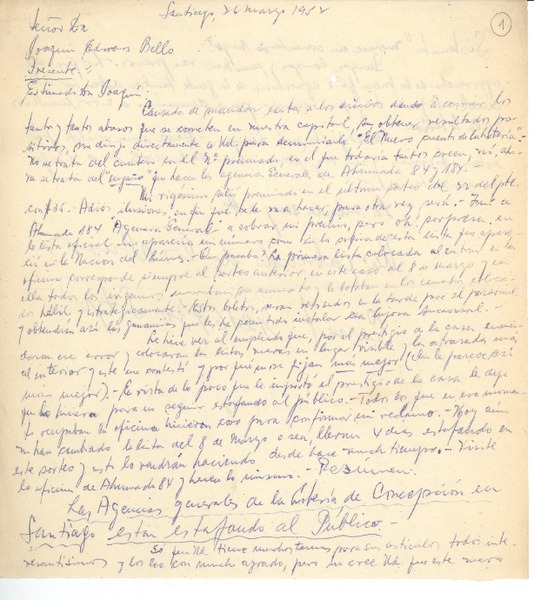 Santiago, 26 marzo 1952
1
Señor Don
Joaquín Edwards Bello
Presente.-
Estimado Don Joaquín:
Cansado de mandar cartas a los diarios dando a conocer los
tantos y tantos abusos que se cometen en nuestra capital, sin obtener resultados positivos,
me dirijo directamente a Ud. para denunciarle "El Nuevo cuento de la lotería".-
no se trata del cambio en el Nº premiado, en el que todavía tantos creen, no, ahora
se trata del "engaño" que hace la agencia General de Ahumada 84 y 184.
Mi vigésimo salió premiado en el último sorteo del 22 del pte.
con $36.- Adiós ilusiones, en fin qué se le va a hacer, para otra vez será.- Fui a
Ahumada 184 Agencia General a cobrar mi premio, pero oh! sorpresa, en
la lista oficial no aparecía mi número
en La Nación del Lunes.- Que pasaba? La primera lista colocada al entrar en la
oficina corresponde siempre al sorteo anterior, en este caso al 8 de marzo y en
ella todos los ingenuos miraban su número y lo botaban en los canastos colocados
hábil y estratégicamente.- Estos boletos, serán retirados en la tarde por el personal
y obtendrán así las ganancias que les ha permitido instalar esa lujosa Sucursal.-
Le hice ver al empleado que, por el prestigio de la casa, enmendaran
ese error y colocaran las listas nuevas en lugar visible y las atrasadas más
al interior y este me contestó y por qué no se fijan más mejor (Que le parece así
más mejor).- En vista de lo poco que le importó el prestigio de la casa le dije
que lo hiciera para no seguir estafando al público.- Todos los que en ese momento
ocupaban la oficina hicieron coro para confirmar mi reclamo.- Hoy aun
no han cambiado la lista del 8 de Marzo o sea, llevan 4 días estafando en
este sorteo y esto lo vendrán haciendo desde hace mucho tiempo.- Visite
la oficina de Ahumada 84 y hacen lo mismo.- Resumen.
Las Agencias generales de la Lotería de Concepción en
Santiago están estafando al Público.-
Sé que Ud. tiene muchos temas para sus artículos todos interesantísimos
y los leo con mucho agrado, pero no cree Ud. que este nuevo